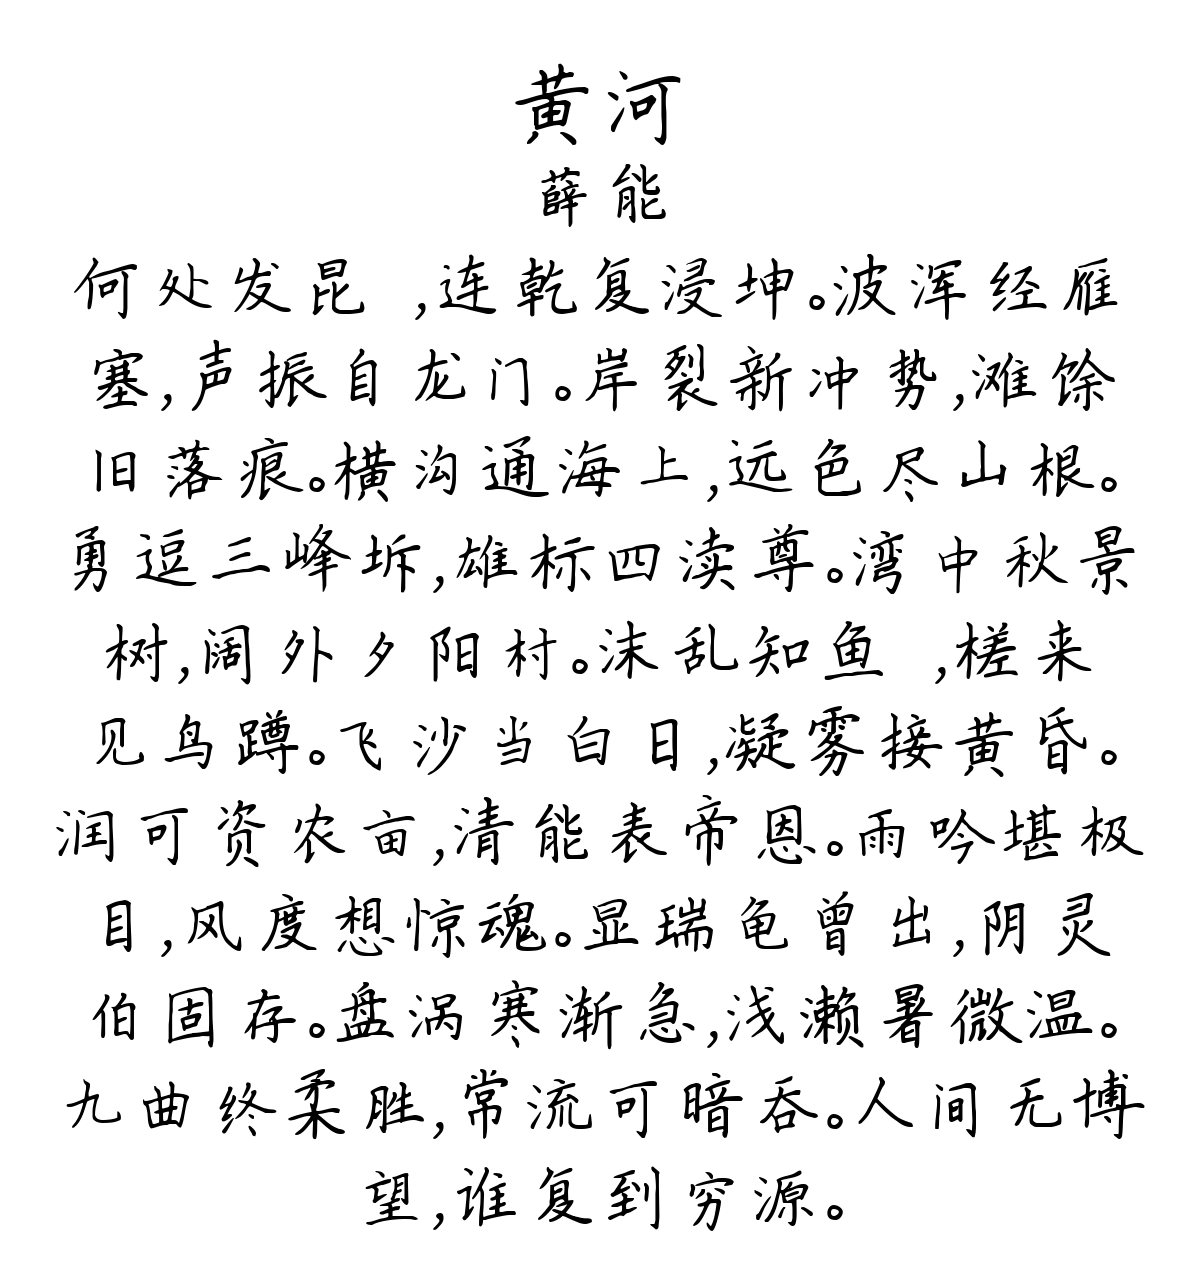 黄河
薛能
何处发昆 ,连乾复浸坤。波浑经雁
塞,声振自龙门。岸裂新冲势,滩馀
旧落痕。横沟通海上,远色尽山根。
勇逗三峰坼,雄标四渎尊。湾中秋景
树,阔外夕阳村。沫乱知鱼 ,槎来
见鸟蹲。飞沙当白日,凝雾接黄昏。
润可资农亩,清能表帝恩。雨吟堪极
目,风度想惊魂。显瑞龟曾出,阴灵
伯固存。盘涡寒渐急,浅濑暑微温。
九曲终柔胜,常流可暗吞。人间无博
望,谁复到穷源。